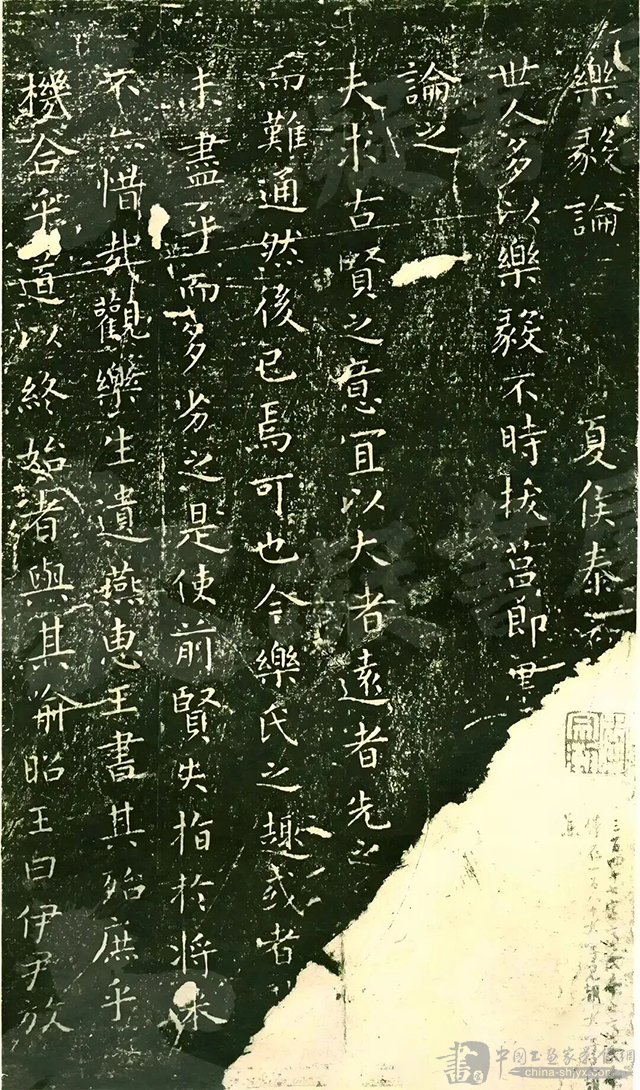 樂毅論 夏侯泰
世人多以樂毅不時拔莒即墨
論之
夫求古賢之意宜以大者遠者先之
而難通然後已焉可也今樂氏之趣或者
未盡乎而多劣之是使前賢失指於將来
不亦惜哉觀樂生遺燕惠王書其殆庶乎
機合乎道以終始者與其喻昭王曰伊尹放